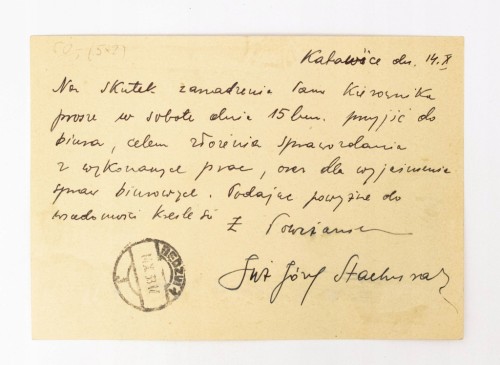 Katowice dn. 14.X
Na skutek zarządzenia Pana Kierownika
proszę w sobotę dnia 15 bm. przyjść do
biura, celem złożenia sprawozdania
z wykonanych prac, oraz dla wyjaśnienia
spraw biurowych. Podając powyższe do
wiadomości kreślę się z Poważaniem
Inż Józef Stachurs
BĘDZIN 2
14.X.38.17